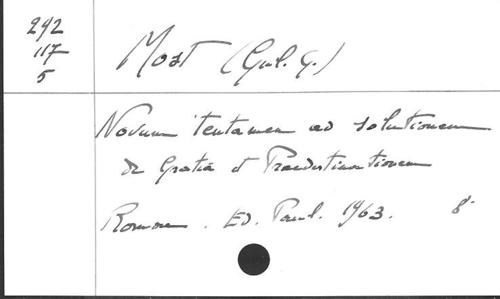 242
117
5
Most (Gul. G.)
Novum tentamen ad solutionem
de Gratia et Praedestinationem
Romae. Ed. Paul. 1963. 8°